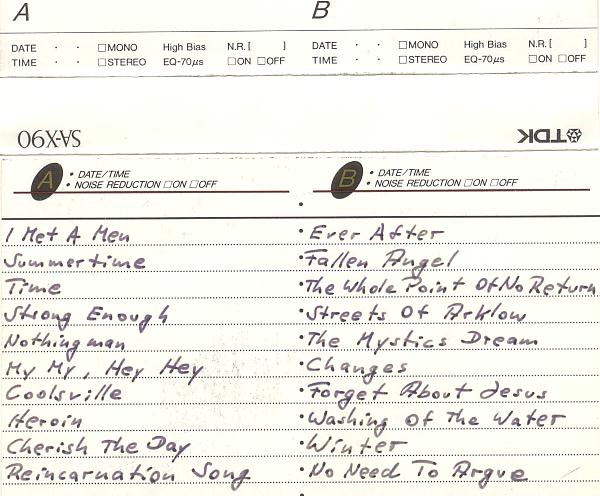 A B
DATE · · □MONO High Bias N.R. [ ] DATE · · □MONO High Bias N.R. [ ]
TIME · · □STEREO EQ-70μs □ON □OFF TIME · · □STEREO EQ-70μs □ON □OFF
SA-X90 TDK
A • DATE/TIME
• NOISE REDUCTION □ON □OFF
B • DATE/TIME
• NOISE REDUCTION □ON □OFF
I Met A Men
Summertime
Time
Strong Enough
Nothingman
My My, Hey Hey
Coolsville
Heroin
Cherish The Day
Reincarnation Song
• Ever After
• Fallen Angel
• The Whole Point Of No Return
• Streets Of Arklow
• The Mystics Dream
• Changes
• Forget About Jesus
• Washing Of The Water
• Winter
• No Need To Argue